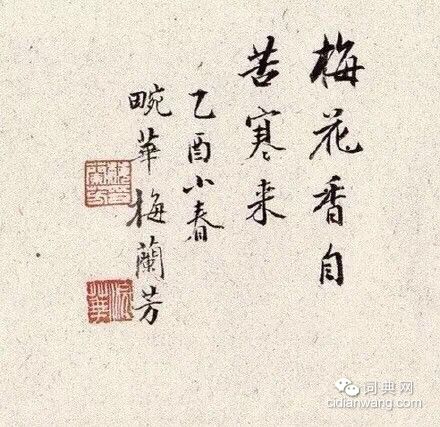 梅花香自
苦寒来
乙酉小春
畹華梅蘭芳
词典网
cidianwang.com